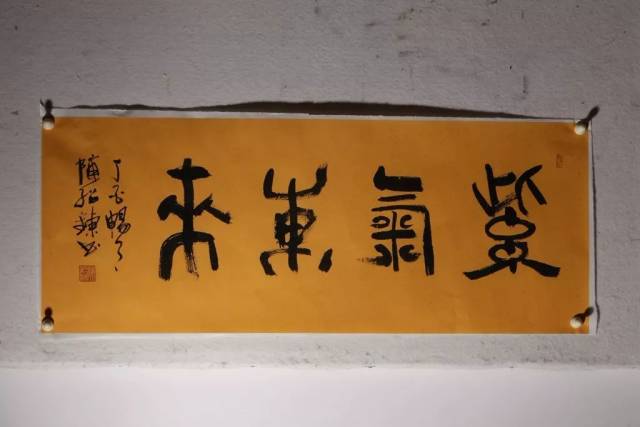 紫氣東來
丁酉暢月